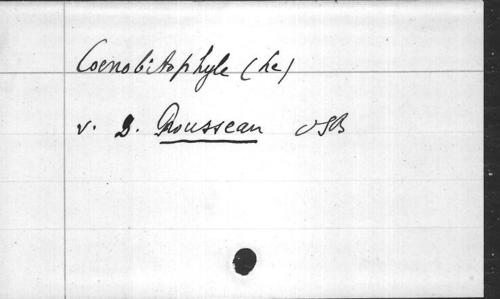 Coenobitophyle (Le)
v. D. Rousseau OSB